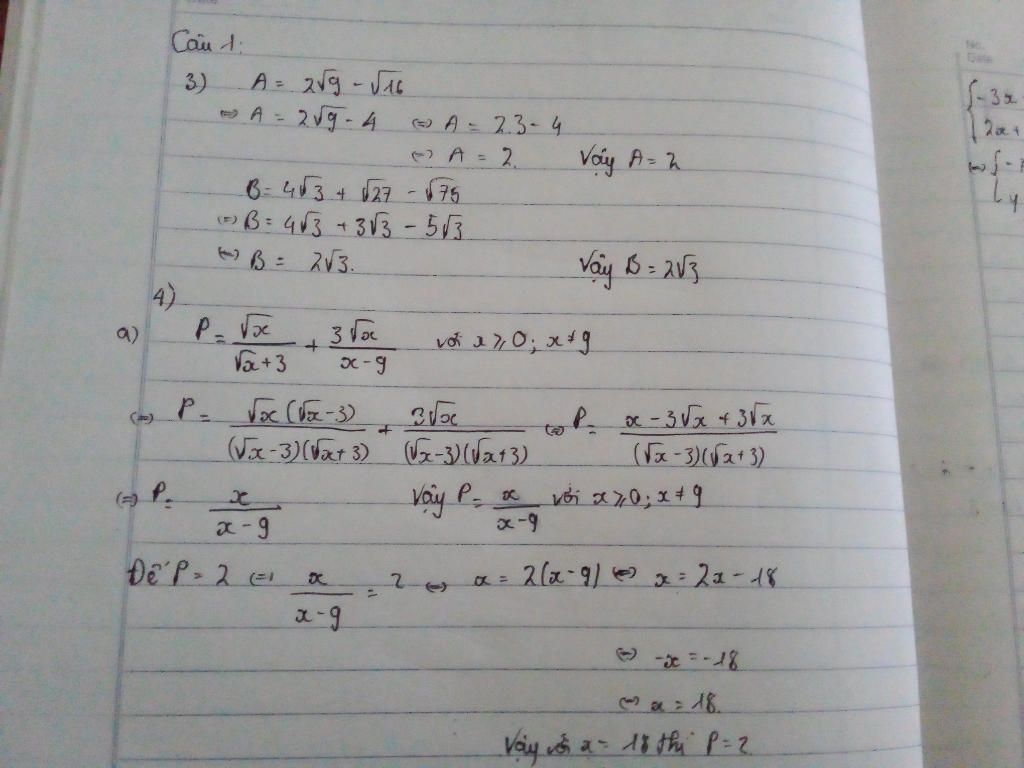 Câu 1:
3) A = 2√9 - √16
⇔ A = 2√9 - 4 ⇔ A = 2.3 - 4
⇔ A = 2. Vậy A = 2
B = 4√3 + √27 - √75
⇔ B = 4√3 + 3√3 - 5√3
⇔ B = 2√3. Vậy B = 2√3
4)
a) P = √x/(√x+3) + 3√x/(x-9) với x ≥ 0; x ≠ 9
⇔ P = √x(√x-3)/((√x-3)(√x+3)) + 3√x/((√x-3)(√x+3)) ⇔ P = (x - 3√x + 3√x)/((√x-3)(√x+3))
⇔ P = x/(x-9) Vậy P = x/(x-9) với x ≥ 0; x ≠ 9
Để P = 2 ⇔ x/(x-9) = 2 ⇔ x = 2(x-9) ⇔ x = 2x - 18
⇔ -x = -18
⇔ x = 18.
Vậy với x = 18 thì P = 2
No.
Date
{ -3x
2x +
⇔ {
y